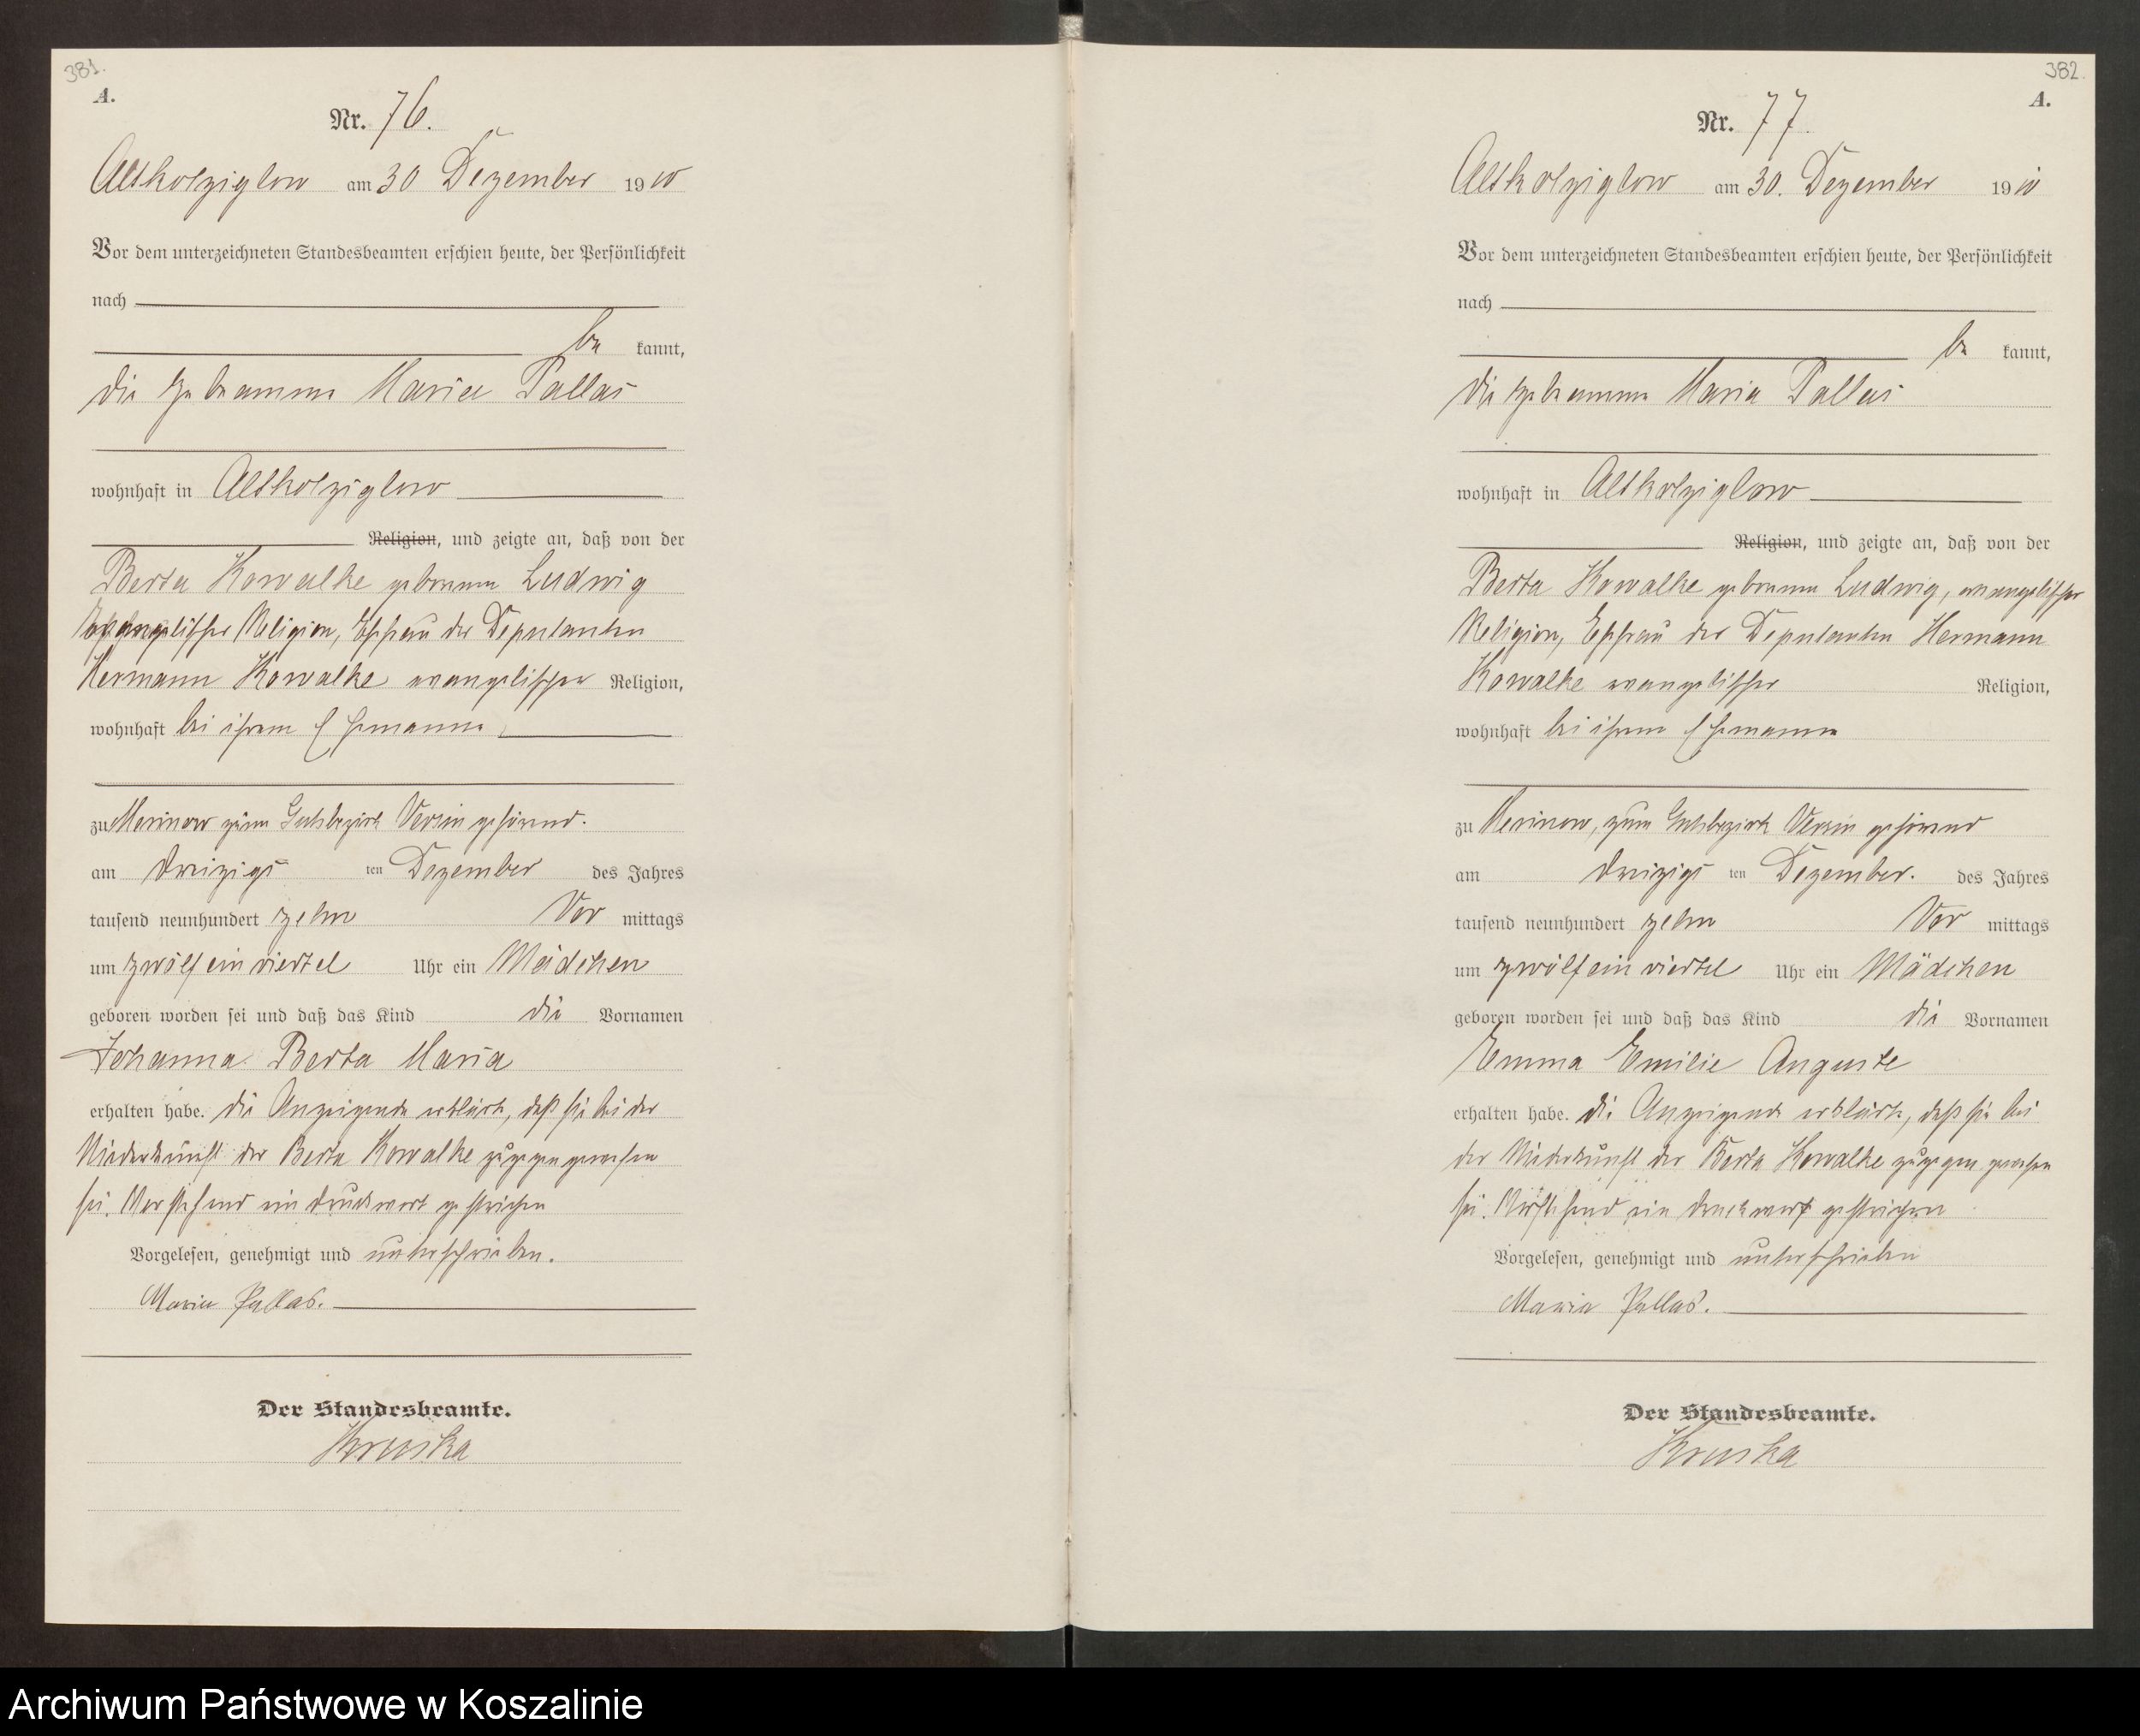 381.
A.
Nr. 76.
Altkolziglow am 30 Dezember 1910
Vor dem unterzeichneten Standesbeamten erschien heute, der Persönlichkeit
nach
be kannt,
die Hebamme Maria Pallas
wohnhaft in Altkolziglow
Religion, und zeigte an, daß von der
Berta Kowalke geborenen Ludwig
evangelischer Religion, Ehefrau des Deputanten
Hermann Kowalke evangelischer Religion,
wohnhaft bei ihrem Ehemanne
zu Merinow zum Gutsbezirk Versin gehörend.
am dreizigs ten Dezember des Jahres
tausend neunhundert zehn Vor mittags
um zwölf ein viertel Uhr ein Mädchen
geboren worden sei und daß das Kind die Vornamen
Johanna Berta Maria
erhalten habe. die Anzeigende erklärte, daß sie bei der
Niederkunft der Berta Kowalke zugegen gewesen
sei. Vorstehend ein Druckwort gestrichen
Vorgelesen, genehmigt und unterschrieben.
Maria Pallas.
Der Standesbeamte.
Kruska
382.
A.
Nr. 77.
Altkolziglow am 30. Dezember 1910
Vor dem unterzeichneten Standesbeamten erschien heute, der Persönlichkeit
nach
be kannt,
die Hebamme Maria Pallas
wohnhaft in Altkolziglow
Religion, und zeigte an, daß von der
Berta Kowalke geborenen Ludwig, evangelischer
Religion, Ehefrau des Deputanten Hermann
Kowalke evangelischer Religion,
wohnhaft bei ihrem Ehemanne
zu Merinow, zum Gutsbezirk Versin gehörend
am dreizigs ten Dezember. des Jahres
tausend neunhundert zehn Vor mittags
um zwölf ein viertel Uhr ein Mädchen
geboren worden sei und daß das Kind die Vornamen
Emma Emilie Auguste
erhalten habe. die Anzeigende erklärte, daß sie bei
der Niederkunft der Berta Kowalke zugegen gewesen
sei. Vorstehend ein Druckwort gestrichen
Vorgelesen, genehmigt und unterschrieben
Maria Pallas.
Der Standesbeamte.
Kruska
Archiwum Państwowe w Koszalinie